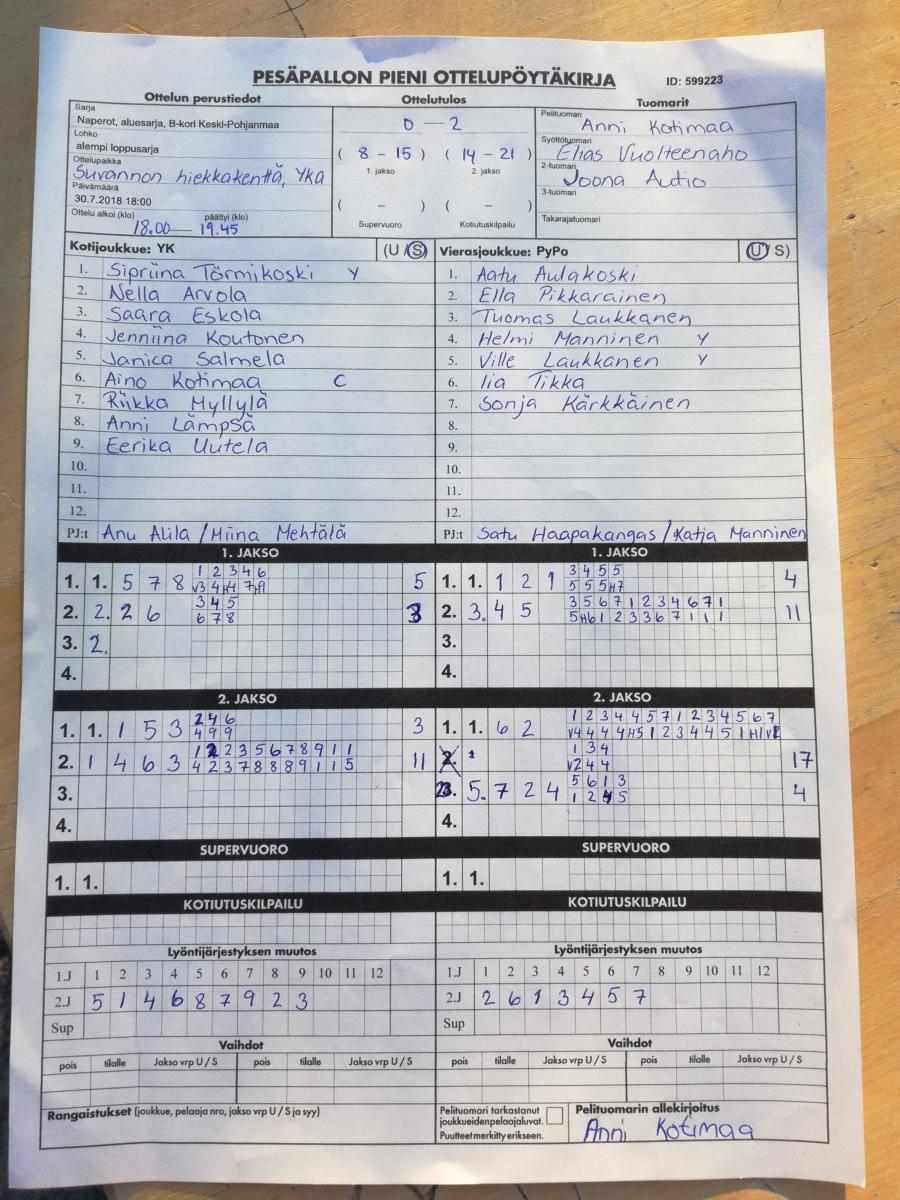 PESÄPALLON PIENI OTTELUPÖYTÄKIRJA ID: 599223
Ottelun perustiedot Ottelutulos Tuomarit
Sarja
Naperot, aluesarja, B-kori Keski-Pohjanmaa
Lohko
alempi loppusarja
Ottelupaikka
Suvannon hiekkakenttä, Yka
Päivämäärä
30.7.2018 18:00
Ottelu alkoi (klo) päättyi (klo)
18.00 — 19.45
0 — 2
( 8 - 15 ) ( 14 - 21 )
1. jakso 2. jakso
( - ) ( - )
Supervuoro Kotiutuskilpailu
Pelituomari
Anni Kotimaa
Syöttötuomari
Elias Vuolteenaho
2-tuomari
Joona Autio
3-tuomari
Takarajatuomari
Kotijoukkue: YK (U / S)
1. Sipriina Törmikoski Y
2. Nella Arvola
3. Saara Eskola
4. Jenniina Koutonen
5. Janica Salmela
6. Aino Kotimaa C
7. Riikka Myllylä
8. Anni Lämpsä
9. Eerika Uutela
10.
11.
12.
PJ:t Anu Alila / Miina Mehtälä
Vierasjoukkue: PyPo (U / S)
1. Aatu Aulakoski
2. Ella Pikkarainen
3. Tuomas Laukkanen
4. Helmi Manninen Y
5. Ville Laukkanen Y
6. Iia Tikka
7. Sonja Kärkkäinen
8.
9.
10.
11.
12.
PJ:t Satu Haapakangas / Katja Manninen
1. JAKSO
1 2 3 4 6
1. 1. 5 7 8 5
3 4 5
2. 2. 2 6 3
6 7 8
3. 2.
4.
1. JAKSO
3 4 5 5
1. 1. 1 2 1 4
3 5 6 7 1 2 3 4 6 7 1
2. 3. 4 5 11
3.
4.
2. JAKSO
2 4 6
1. 1. 1 5 3 3
4 9 9
1 2 2 3 5 6 7 8 9 1 1
2. 1 4 6 3 11
4 2 3 7 8 8 8 9 1 1 5
3.
4.
2. JAKSO
1 2 3 4 4 5 7 1 2 3 4 5 6 7
1. 1. 6 2
1 3 4
2. 17
5 6 1 3
5. 7 2 4 4
4.
SUPERVUORO
1. 1.
SUPERVUORO
1. 1.
KOTIUTUSKILPAILU
KOTIUTUSKILPAILU
Lyöntijärjestyksen muutos
1.J 1 2 3 4 5 6 7 8 9 10 11 12
2.J 5 1 4 6 8 7 9 2 3
Sup
Lyöntijärjestyksen muutos
1.J 1 2 3 4 5 6 7 8 9 10 11 12
2.J 2 6 1 3 4 5 7
Sup
Vaihdot
pois tilalle Jakso vrp U / S pois tilalle Jakso vrp U / S
Vaihdot
pois tilalle Jakso vrp U / S pois tilalle Jakso vrp U / S
Rangaistukset (joukkue, pelaaja nro, jakso vrp U / S ja syy)
Pelituomari tarkastanut
joukkueidenpelaajaluvat.
Puutteet merkitty erikseen.
Pelituomarin allekirjoitus
Anni Kotimaa